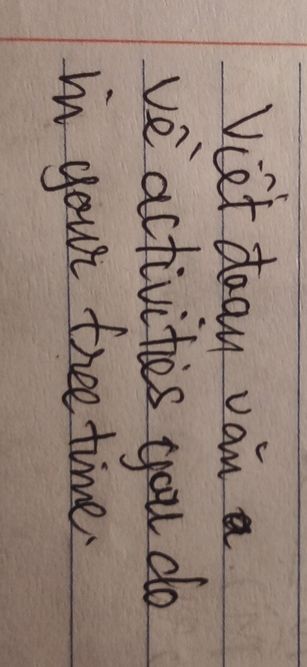 Viết đoạn văn a
về activities you do
in your free time.